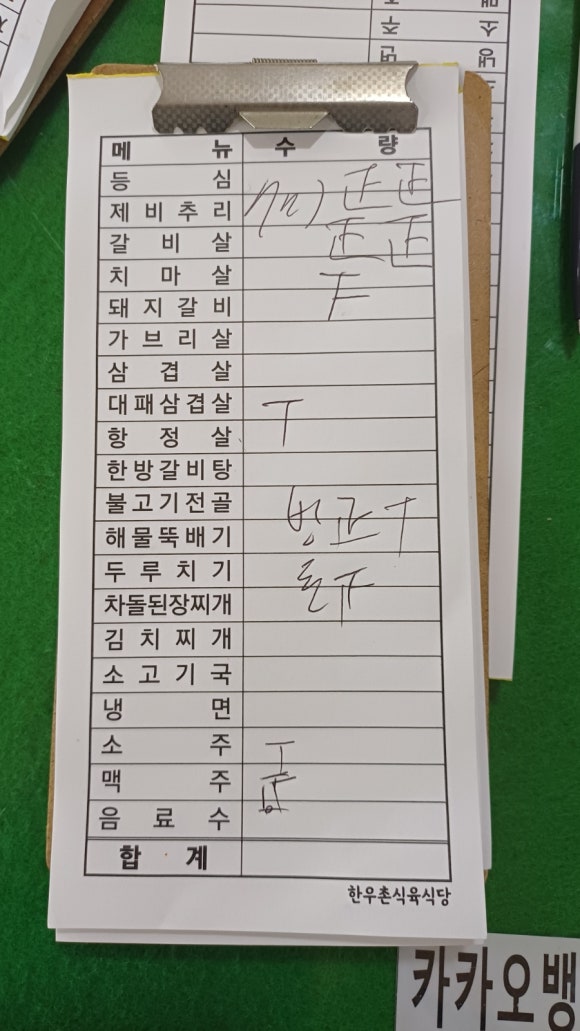 메 뉴 수 량
등 심
제비추리 正 正
갈 비 살 正 正
치 마 살
돼지갈비
가브리살
삼 겹 살
대패삼겹살
항 정 살
한방갈비탕
불고기전골
해물뚝배기
두루치기
차돌된장찌개
김치찌개
소고기국
냉 면
소 주
맥 주
음 료 수
합 계
한우촌식육식당
카카오뱅